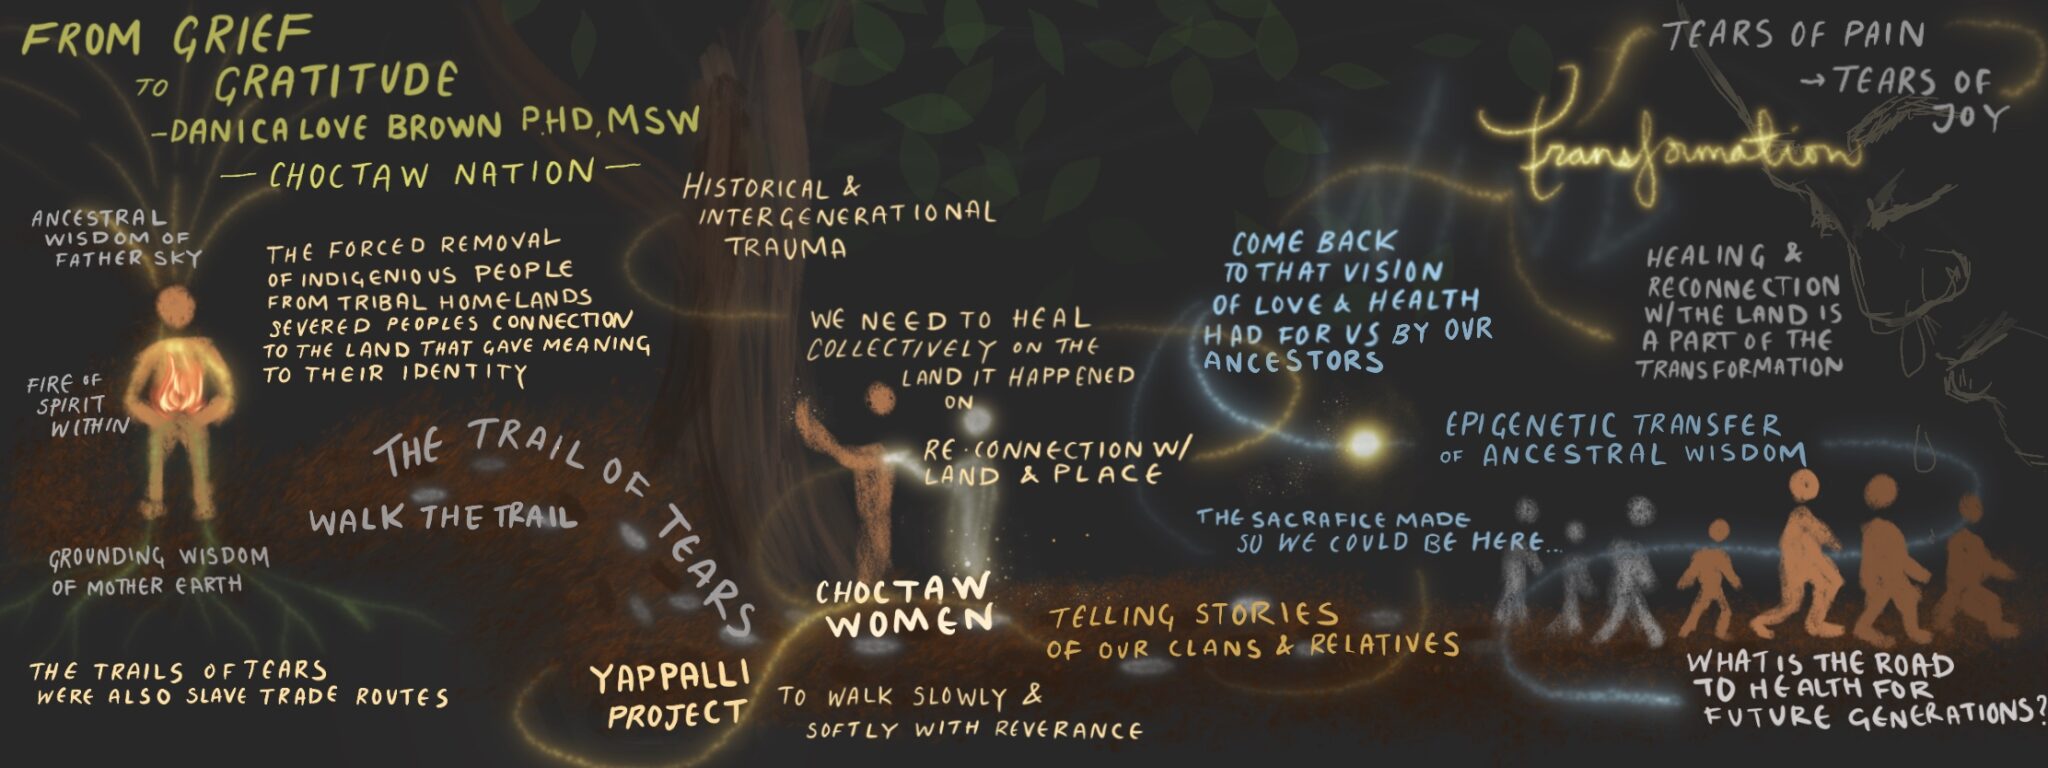 FROM GRIEF
TO GRATITUDE
-DANICA LOVE BROWN P.HD, MSW
- CHOCTAW NATION -
ANCESTRAL
WISDOM OF
FATHER SKY
FIRE OF
SPIRIT
WITHIN
GROUNDING WISDOM
OF MOTHER EARTH
THE FORCED REMOVAL
OF INDIGENIOUS PEOPLE
FROM TRIBAL HOMELANDS
SEVERED PEOPLES CONNECTION
TO THE LAND THAT GAVE MEANING
TO THEIR IDENTITY
THE TRAIL OF TEARS
WALK THE TRAIL
THE TRAILS OF TEARS
WERE ALSO SLAVE TRADE ROUTES
HISTORICAL &
INTERGENERATIONAL
TRAUMA
WE NEED TO HEAL
COLLECTIVELY ON THE
LAND IT HAPPENED
ON
RE-CONNECTION W/
LAND & PLACE
CHOCTAW
WOMEN
YAPPALLI
PROJECT
TO WALK SLOWLY &
SOFTLY WITH REVERANCE
TELLING STORIES
OF OUR CLANS & RELATIVES
COME BACK
TO THAT VISION
OF LOVE & HEALTH
HAD FOR US BY OUR
ANCESTORS
TEARS OF PAIN
→ TEARS OF
JOY
Transformation
HEALING &
RECONNECTION
W/THE LAND IS
A PART OF THE
TRANSFORMATION
EPIGENETIC TRANSFER
OF ANCESTRAL WISDOM
THE SACRAFICE MADE
SO WE COULD BE HERE...
WHAT IS THE ROAD
TO HEALTH FOR
FUTURE GENERATIONS?